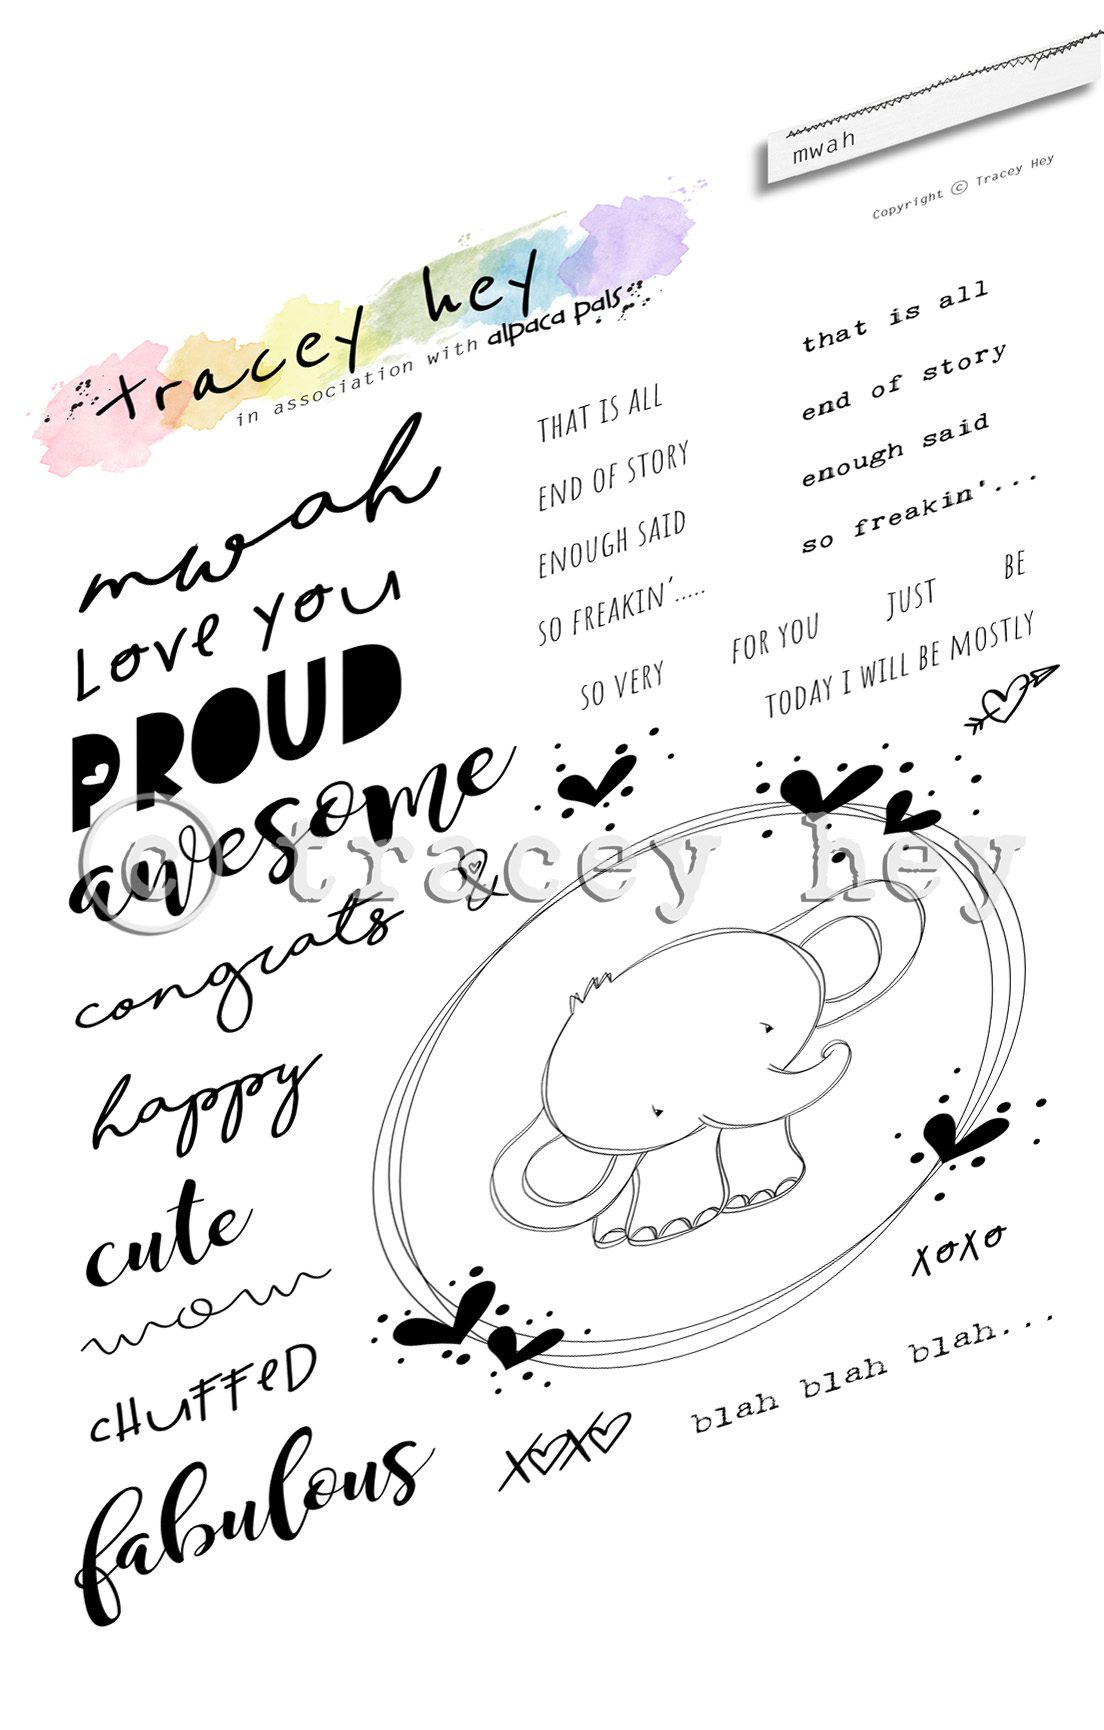 mwah
Copyright © Tracey Hey
tracey hey
in association with alpaca pals
mwah
Love you
PROUD
awesome
congrats &
happy
cute
mom
cHuFFeD
fabulous
THAT IS ALL
END OF STORY
ENOUGH SAID
SO FREAKIN'.....
SO VERY
FOR YOU
JUST
BE
TODAY I WILL BE MOSTLY
that is all
end of story
enough said
so freakin'...
© tracey hey
xoxo
xoxo
blah blah blah...